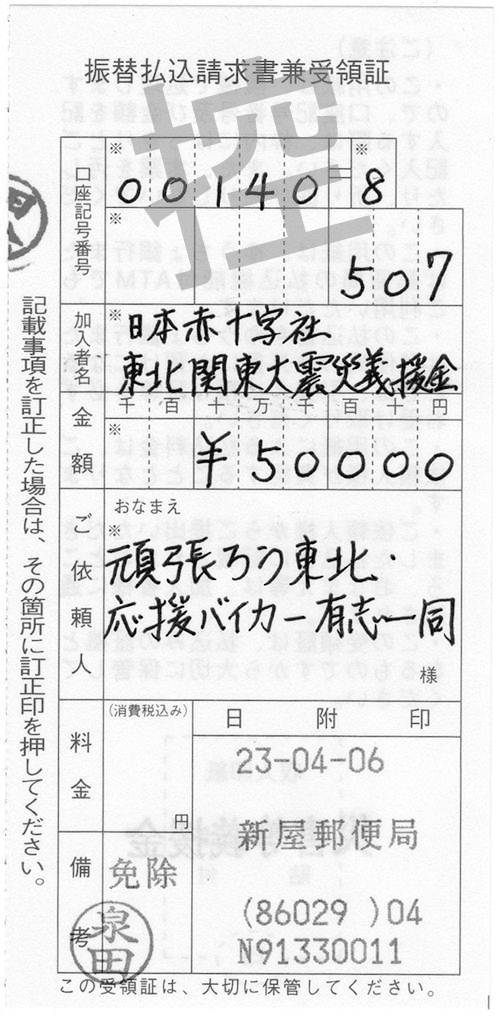 振替払込請求書兼受領証
控
口座記号番号
※
00140=8
※
507
加入者名
※
日本赤十字社
東北関東大震災義援金
金額
千百十万千百十円
※
¥50000
ご依頼人
おなまえ
※
頑張ろう東北・
応援バイカー有志一同
様
料金
(消費税込み)
円
日附印
23-04-06
新屋郵便局
(86029 )04
N91330011
備考
免除
泉田
この受領証は、大切に保管してください。
記載事項を訂正した場合は、その箇所に訂正印を押してください。